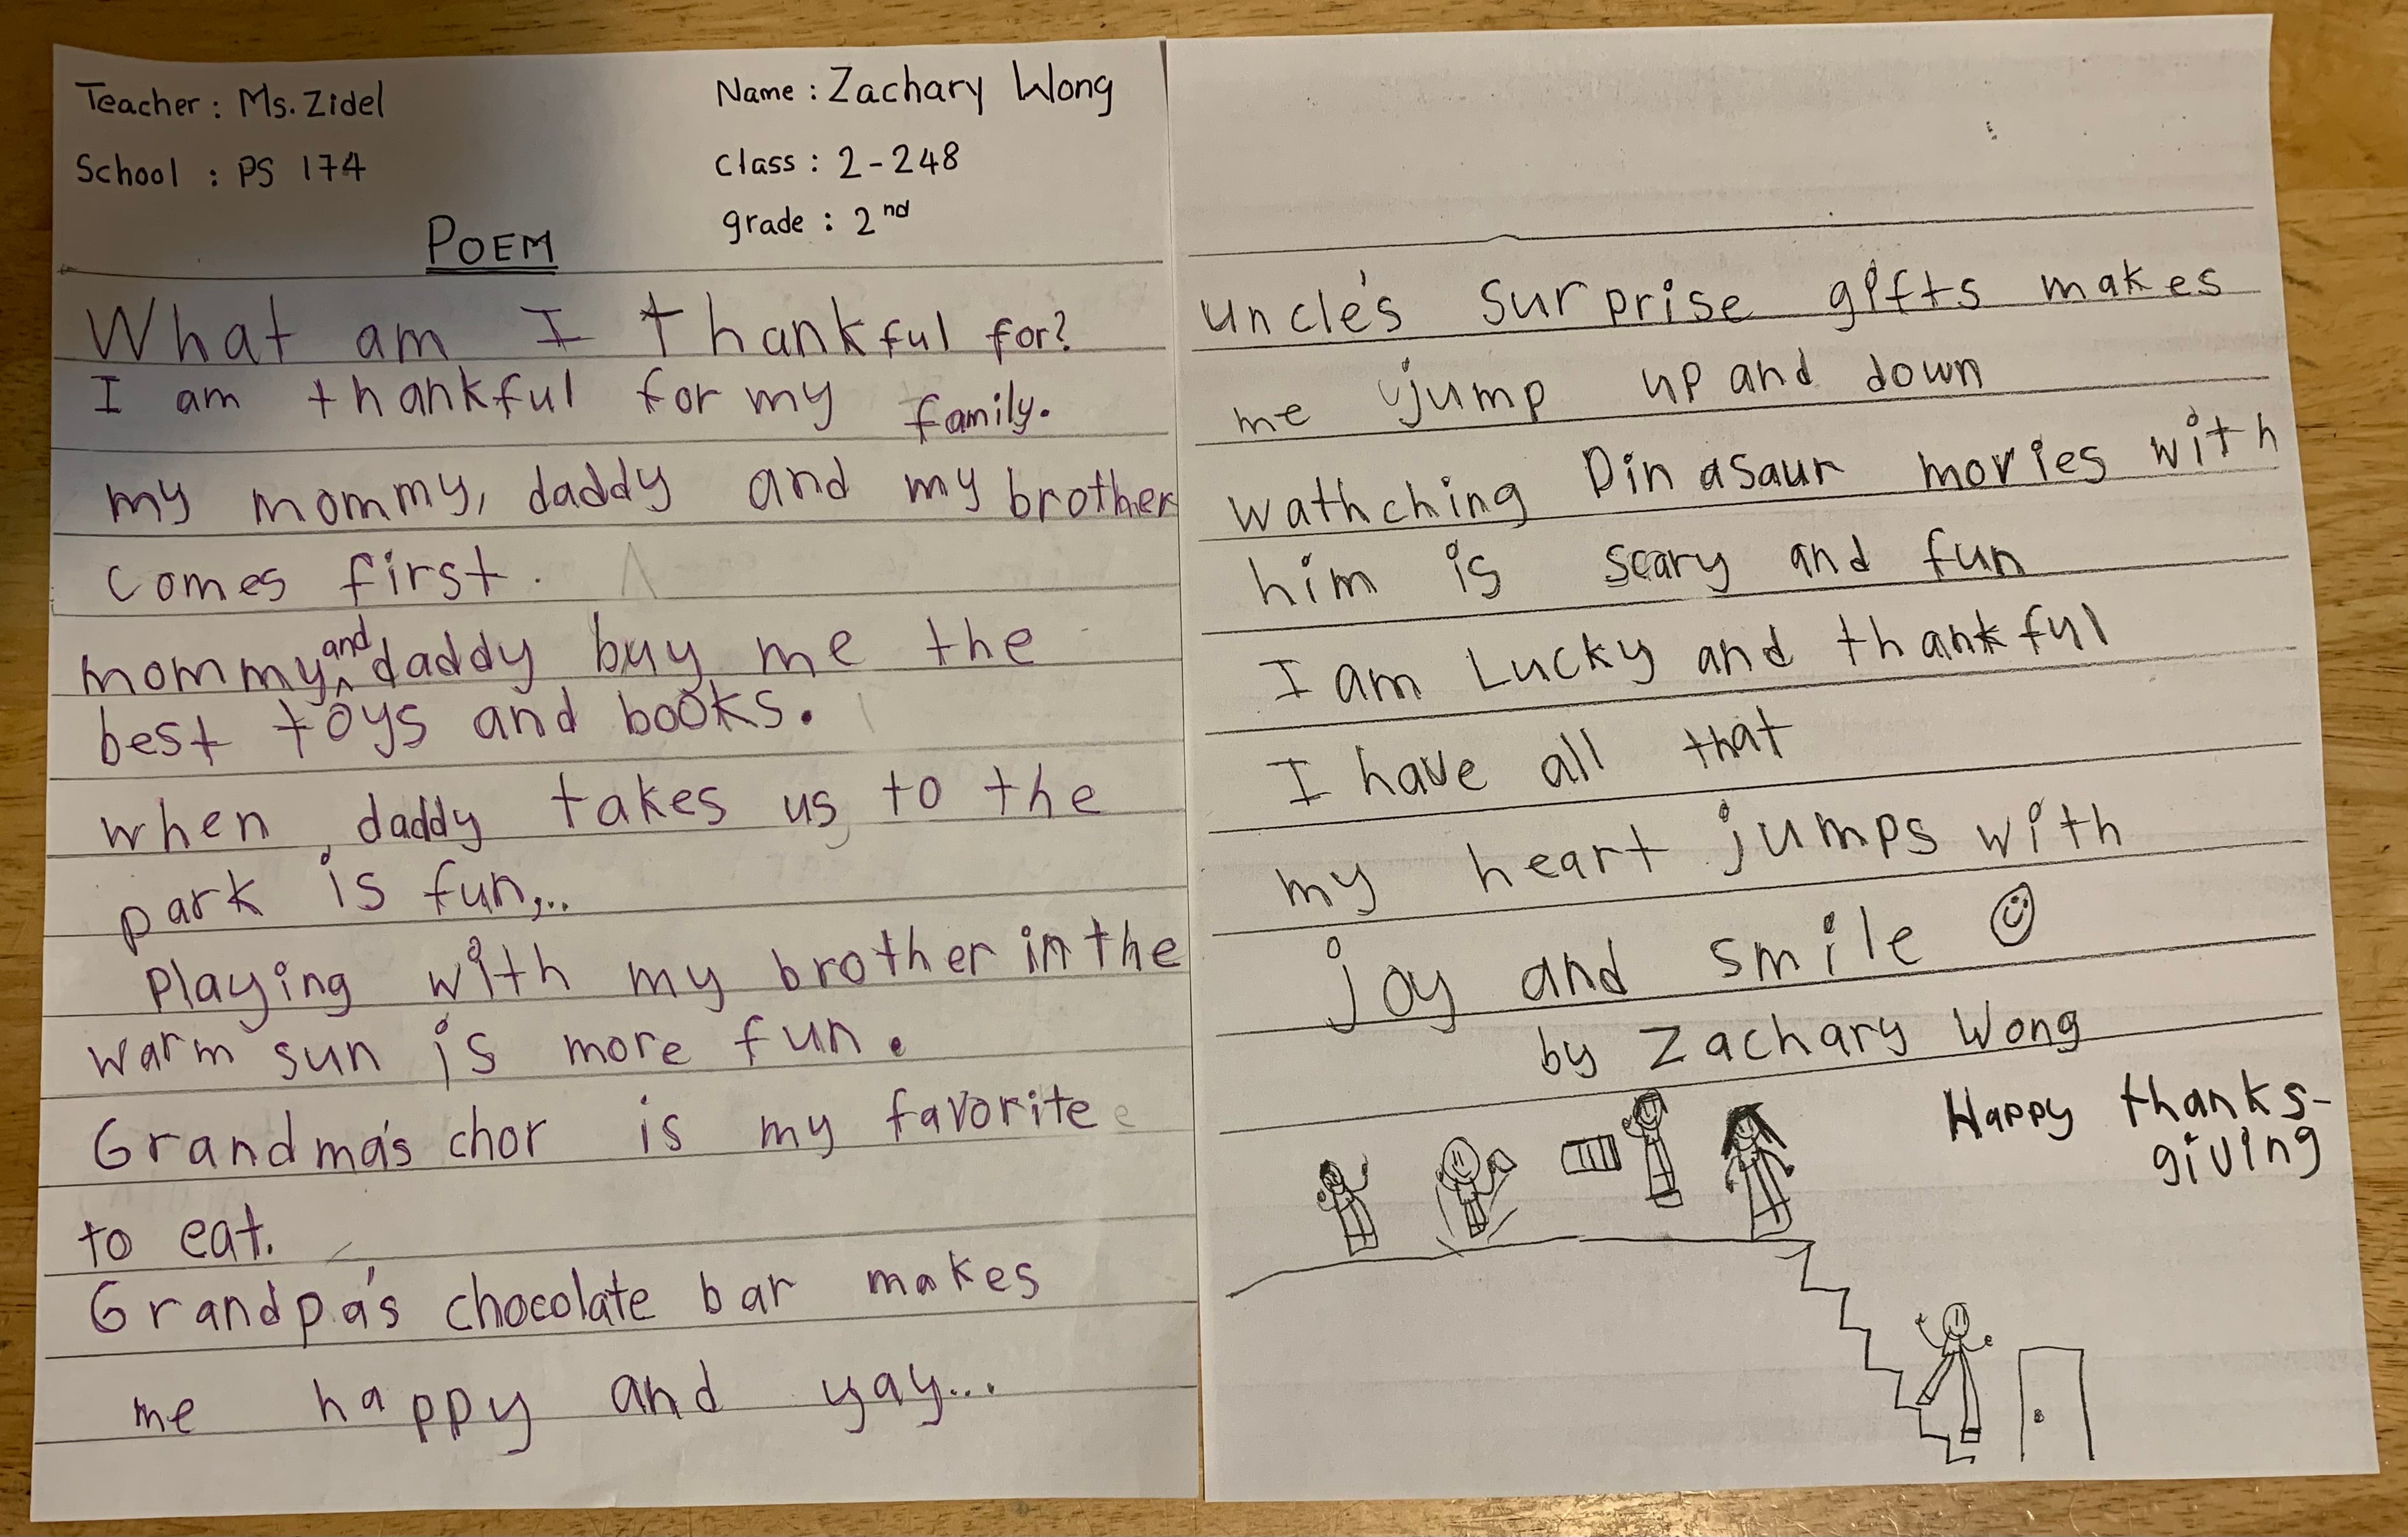 Teacher: Ms. Zidel
School : PS 174
Name : Zachary Wong
Class : 2-248
grade : 2nd
POEM
What am I thankful for?
I am thankful for my family.
my mommy, daddy and my brother
comes first.
mommy and daddy buy me the
best toys and books.
when daddy takes us to the
park is fun,..
Playing with my brother in the
warm sun is more fun.
Grandma's chor is my favorite
to eat.
Grandpa's chocolate bar makes
me happy and yay...
uncle's surprise gifts makes
me jump up and down
wathching Dinasaur movies with
him is scary and fun
I am Lucky and thankful
I have all that
my heart jumps with
joy and smile
by Zachary Wong
Happy thanks-
giving